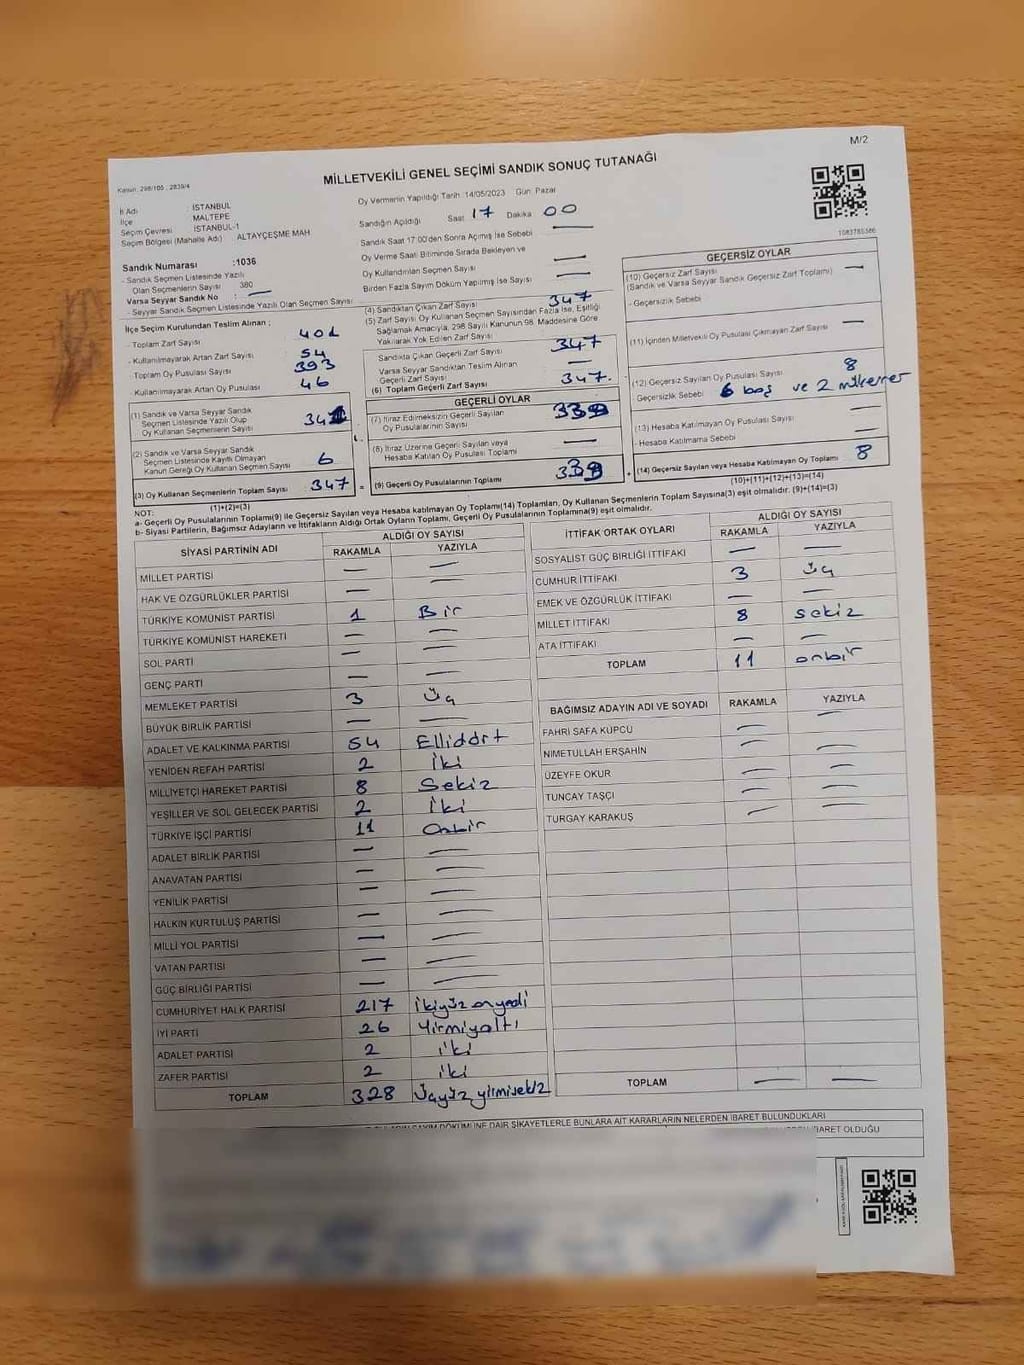 M/2
MİLLETVEKİLİ GENEL SEÇİMİ SANDIK SONUÇ TUTANAĞI
Kanun: 298/105 ; 2839/4
İl Adı : İSTANBUL
İlçe MALTEPE
Seçim Çevresi İSTANBUL-1
Seçim Bölgesi (Mahalle Adı) : ALTAYÇEŞME MAH
Sandık Numarası :1036
- Sandık Seçmen Listesinde Yazılı
Olan Seçmenlerin Sayısı 380
Varsa Seyyar Sandık No : —
- Seyyar Sandık Seçmen Listesinde Yazılı Olan Seçmen Sayısı
İlçe Seçim Kurulundan Teslim Alınan ;
- Toplam Zarf Sayısı 401
- Kullanılmayarak Artan Zarf Sayısı 54
- Toplam Oy Pusulası Sayısı 393
- Kullanılmayarak Artan Oy Pusulası 46
(1) Sandık ve Varsa Seyyar Sandık
Seçmen Listesinde Yazılı Olup
Oy Kullanan Seçmenlerin Sayısı 341
(2) Sandık ve Varsa Seyyar Sandık
Seçmen Listesinde Kayıtlı Olmayan
Kanun Gereği Oy Kullanan Seçmen Sayısı 6
(3) Oy Kullanan Seçmenlerin Toplam Sayısı 347
(1)+(2)=(3)
Oy Vermenin Yapıldığı Tarih: 14/05/2023 Gün: Pazar
Sandığın Açıldığı Saat 17 Dakika 00
Sandık Saat 17:00'den Sonra Açılmış İse Sebebi —
Oy Verme Saati Bitiminde Sırada Bekleyen ve
Oy Kullandırılan Seçmen Sayısı —
Birden Fazla Sayım Döküm Yapılmış İse Sayısı —
(4) Sandıktan Çıkan Zarf Sayısı 347
(5) Zarf Sayısı Oy Kullanan Seçmen Sayısından Fazla İse, Eşitliği
Sağlamak Amacıyla, 298 Sayılı Kanunun 98. Maddesine Göre
Yakılarak Yok Edilen Zarf Sayısı
Sandıkta Çıkan Geçerli Zarf Sayısı 347
Varsa Seyyar Sandıktan Teslim Alınan
Geçerli Zarf Sayısı —
(6) Toplam Geçerli Zarf Sayısı 347
GEÇERLİ OYLAR
(7) İtiraz Edilmeksizin Geçerli Sayılan
Oy Pusulalarının Sayısı 339
(8) İtiraz Üzerine Geçerli Sayılan veya
Hesaba Katılan Oy Pusulası Toplamı —
(9) Geçerli Oy Pusulalarının Toplamı 339
1083785386
GEÇERSİZ OYLAR
(10) Geçersiz Zarf Sayısı —
(Sandık ve Varsa Seyyar Sandık Geçersiz Zarf Toplamı)
- Geçersizlik Sebebi
(11) İçinden Milletvekili Oy Pusulası Çıkmayan Zarf Sayısı —
(12) Geçersiz Sayılan Oy Pusulası Sayısı 8
Geçersizlik Sebebi 6 boş ve 2 mükerrer
(13) Hesaba Katılmayan Oy Pusulası Sayısı —
- Hesaba Katılmama Sebebi —
(14) Geçersiz Sayılan veya Hesaba Katılmayan Oy Toplamı 8
(10)+(11)+(12)+(13)=(14)
NOT:
a- Geçerli Oy Pusulalarının Toplamı(9) ile Geçersiz Sayılan veya Hesaba katılmayan Oy Toplamı(14) Toplamları, Oy Kullanan Seçmenlerin Toplam Sayısına(3) eşit olmalıdır. (9)+(14)=(3)
b- Siyasi Partilerin, Bağımsız Adayların ve İttifakların Aldığı Ortak Oyların Toplamı, Geçerli Oy Pusulalarının Toplamına(9) eşit olmalıdır.
SİYASİ PARTİNİN ADI ALDIĞI OY SAYISI
RAKAMLA YAZIYLA
MİLLET PARTİSİ — —
HAK VE ÖZGÜRLÜKLER PARTİSİ — —
TÜRKİYE KOMÜNİST PARTİSİ 1 Bir
TÜRKİYE KOMÜNİST HAREKETİ — —
SOL PARTİ — —
GENÇ PARTİ — —
MEMLEKET PARTİSİ 3 Üç
BÜYÜK BİRLİK PARTİSİ — —
ADALET VE KALKINMA PARTİSİ 54 Ellidört
YENİDEN REFAH PARTİSİ 2 İki
MİLLİYETÇİ HAREKET PARTİSİ 8 Sekiz
YEŞİLLER VE SOL GELECEK PARTİSİ 2 İki
TÜRKİYE İŞÇİ PARTİSİ 11 Onbir
ADALET BİRLİK PARTİSİ — —
ANAVATAN PARTİSİ — —
YENİLİK PARTİSİ — —
HALKIN KURTULUŞ PARTİSİ — —
MİLLİ YOL PARTİSİ — —
VATAN PARTİSİ — —
GÜÇ BİRLİĞİ PARTİSİ — —
CUMHURİYET HALK PARTİSİ 217 ikiyüz onyedi
İYİ PARTİ 26 Yirmialtı
ADALET PARTİSİ 2 iki
ZAFER PARTİSİ 2 iki
TOPLAM 328 Üçyüz yirmisekiz
İTTİFAK ORTAK OYLARI ALDIĞI OY SAYISI
RAKAMLA YAZIYLA
SOSYALİST GÜÇ BİRLİĞİ İTTİFAKI — —
CUMHUR İTTİFAKI 3 üç
EMEK VE ÖZGÜRLÜK İTTİFAKI — —
MİLLET İTTİFAKI 8 sekiz
ATA İTTİFAKI — —
TOPLAM 11 onbir
BAĞIMSIZ ADAYIN ADI VE SOYADI RAKAMLA YAZIYLA
FAHRİ SAFA KÜPCÜ — —
NİMETULLAH ERŞAHİN — —
ÜZEYFE OKUR — —
TUNCAY TAŞÇI — —
TURGAY KARAKUŞ — —
TOPLAM — —
SAYIM DÖKÜMÜNE DAİR ŞİKAYETLERLE BUNLARA AİT KARARLARIN NELERDEN İBARET BULUNDUKLARI
İBARET OLDUĞU